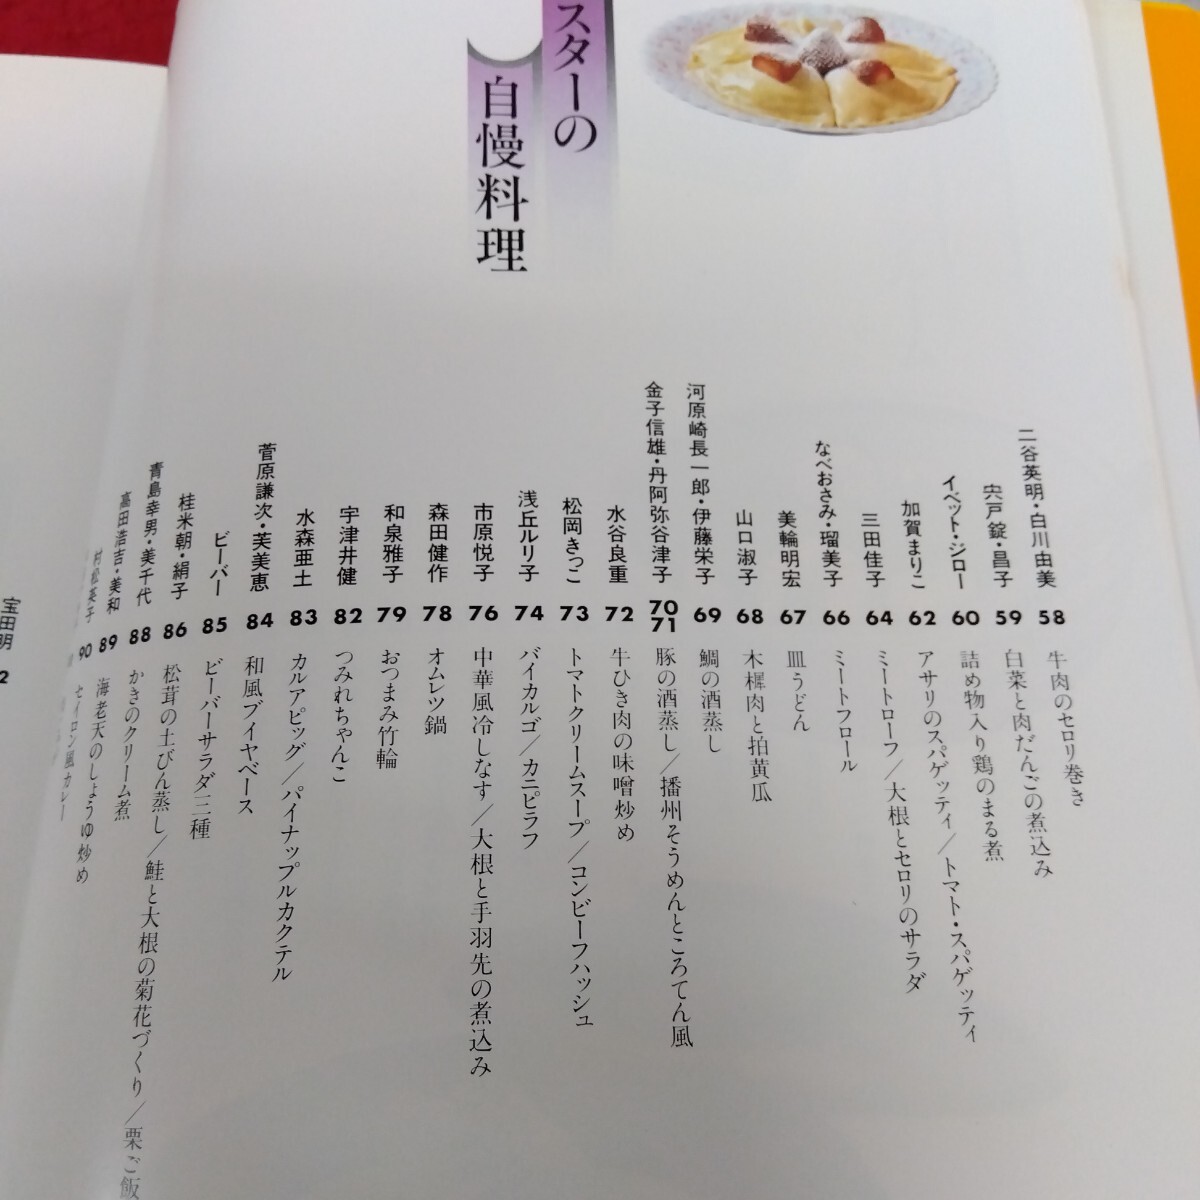 スターの
自慢料理
二谷英明・白川由美 58 牛肉のセロリ巻き
宍戸錠・昌子 59 白菜と肉だんごの煮込み
イベット・ジロー 60 詰め物入り鶏のまる煮
加賀まりこ 62 アサリのスパゲッティ/トマト・スパゲッティ
三田佳子 64 ミートローフ/大根とセロリのサラダ
なべおさみ・瑠美子 66 ミートフロール
美輪明宏 67 皿うどん
山口淑子 68 木樨肉と拍黄瓜
河原崎長一郎・伊藤栄子 69 鯛の酒蒸し
金子信雄・丹阿弥谷津子 70 71 豚の酒蒸し/播州そうめんところてん風
水谷良重 72 牛ひき肉の味噌炒め
松岡きっこ 73 トマトクリームスープ/コンビーフハッシュ
浅丘ルリ子 74 バイカルゴ/カニピラフ
市原悦子 76 中華風冷しなす/大根と手羽先の煮込み
森田健作 78 オムレツ鍋
和泉雅子 79 おつまみ竹輪
宇津井健 82 つみれちゃんこ
水森亜土 83 カルアピッグ/パイナップルカクテル
菅原謙次・芙美恵 84 和風ブイヤベース
ビーバー 85 ビーバーサラダ三種
桂米朝・絹子 86 松茸の土びん蒸し/鮭と大根の菊花づくり/栗ご飯
青島幸男・美千代 88 かきのクリーム煮
高田浩吉・美和 89 海老天のしょうゆ炒め
村松英子 90 セイロン風カレー
宝田明
2